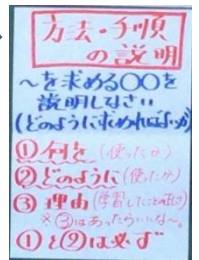 方法・手順
の説明
～を求める〇〇を
説明しなさい
(どのように求めればよいか)
①何を(使ったか)
②どのように(使ったか)
③理由(学習したことの正さ)
※③はあったらいいな～。
①と②は必ず